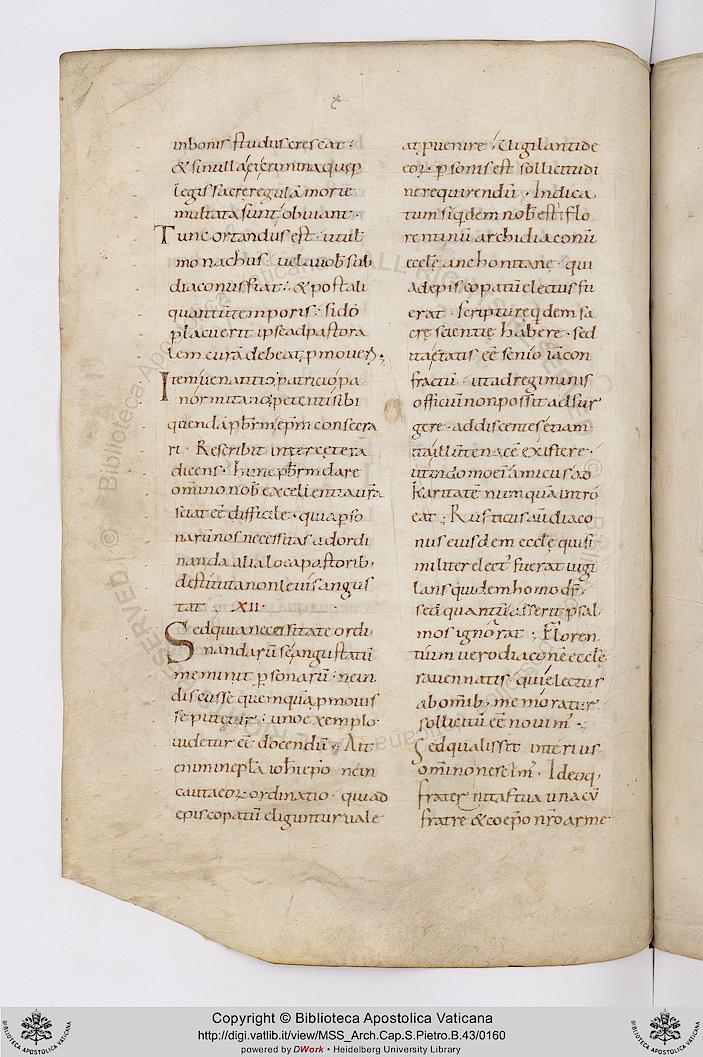 in bonis studiis crescat .
& si nulla ei crimina que p
legis sacre regulā morte
multata sunt obuiant .
Tunc ortandus est . ut uł
monachus . uel a uob̄ sub
diaconus fiat . & post ali
quantū temporis . si dō
placuerit ipse ad pastora
lem curā debeat pmoueri .
Item uenantio patricio pa
normitano petenti sibi
quendā pb̄rm ep̄m consecra
ri . Rescribit inter cetera
dicens . hunc pb̄rm dare
om̄ino nob̄ excellentia ur̄a
sciat eē difficile . quia pso
narū nos necessitas ad ordi
nanda alia loca pastorib;
destituta non leuis angus
tat . XII .
Sed quia necessitate ordi
nandarū se angustatū
meminit psonarū . ne in
discusse quemquā pmouis
se putetur . uno exemplo
uidetur eē docendū . Ait
enim in epła ioh̄i ep̄o . ne in
cauta eoȝ ordinatio . qui ad
episcopatū eliguntur uale
at puenire . Uigilanti de
eoȝ psonis est sollicitudi
ne requirendū . Indica
tum siqdem nob̄ est . flo
rentinū archidiaconū
eccłe anchonitane . qui
ad episcopatū electus fu
erat . scripture qdem sa
cre scientię habere . sed
ita etatis eē senio iā con
fractū . ut ad regiminis
officiū non possit adsur
gere . addiscentes etiam
ita illū tenacē existere .
ut in domo ei amicus ad
karitatem numquā intro
eat . Rusticus aū diaco
nus eiusdem eccłe qui si
militer elect' fuerat uigi
lans quidem homo d̄r
sed quantū asserit psal
mos ignorat . Floren
tium uero diaconē eccłe
rauennatis . qui electus
ab om̄ib; memoratur
sollicitū eē nouim' .
Sed qualis sit interius
om̄ino nescim' . Ideoq;
frater nitas tua una cū
fratre & coep̄o nr̄o arme
Copyright © Biblioteca Apostolica Vaticana
http://digi.vatlib.it/view/MSS_Arch.Cap.S.Pietro.B.43/0160
powered by DWork • Heidelberg University Library